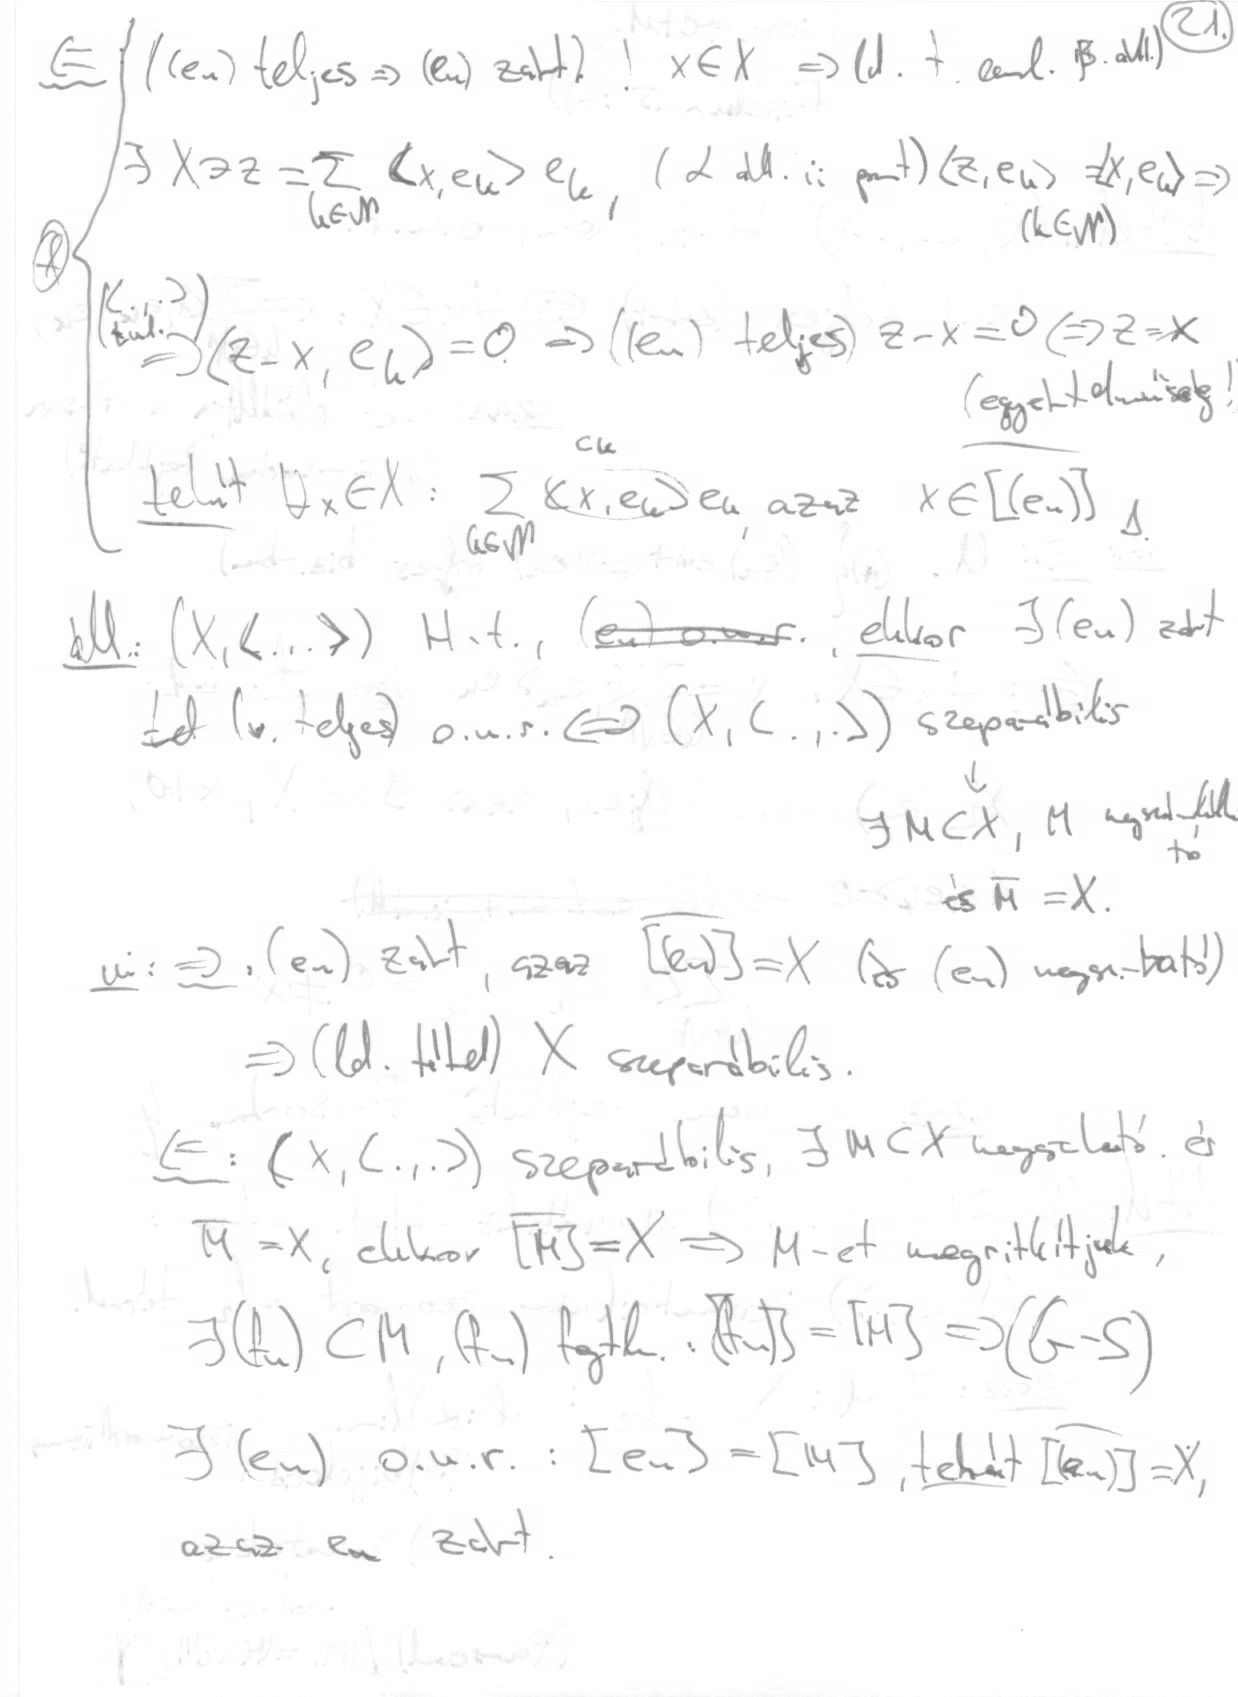 21.
⇐ ((en) teljes ⇒ (en) zárt). ! x∈X ⇒ (ld. t. eml. β. áll.)
∃ X∋z = Σ <x,ek> ek, (α áll. ii pont) <z,ek> = <x,ek> ⇒
k∈𝒩 (k∈𝒩)
(<.,.> tul.) ⇒ <z-x, ek> = 0 ⇒ ((en) teljes) z-x=0 (⇒ z=x
(egyértelműség!
ck
tehát ∀x∈X: Σ <x,ek> ek, azaz x∈[(en)]
k∈𝒩
áll.: (X,<.,.>) H.t., (en) o.n.r., ekkor ∃(en) zárt
(v. teljes) o.n.r. ⇔ (X,<.,.>) szeparábilis
↓
∃ M⊂X, M megszámlálható
és M̅ = X.
ui: ⇒. (en) zárt, azaz [(en)] = X (és (en) megsz.-ható)
⇒ (ld. tétel) X szeparábilis.
⇐: (X,<.,.>) szeparábilis, ∃ M⊂X megszható. és
M̅ = X, ekkor [M] = X ⇒ M-et megritkítjuk,
∃(fn) ⊂ M, (fn) fgtln. : [(fn)] = [M] ⇒ (G-S)
∃ (en) o.n.r. : [en] = [M], tehát [(en)] = X,
azaz en zárt.